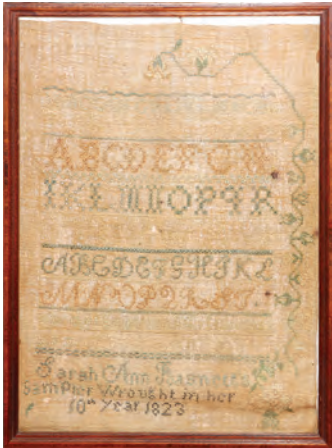 ABCDEFGH
IKLMNOPQR
ABCDEFGHIKL
MNOPQRST
Sarah Ann
Sampler Wrought in her
10th Year 1823